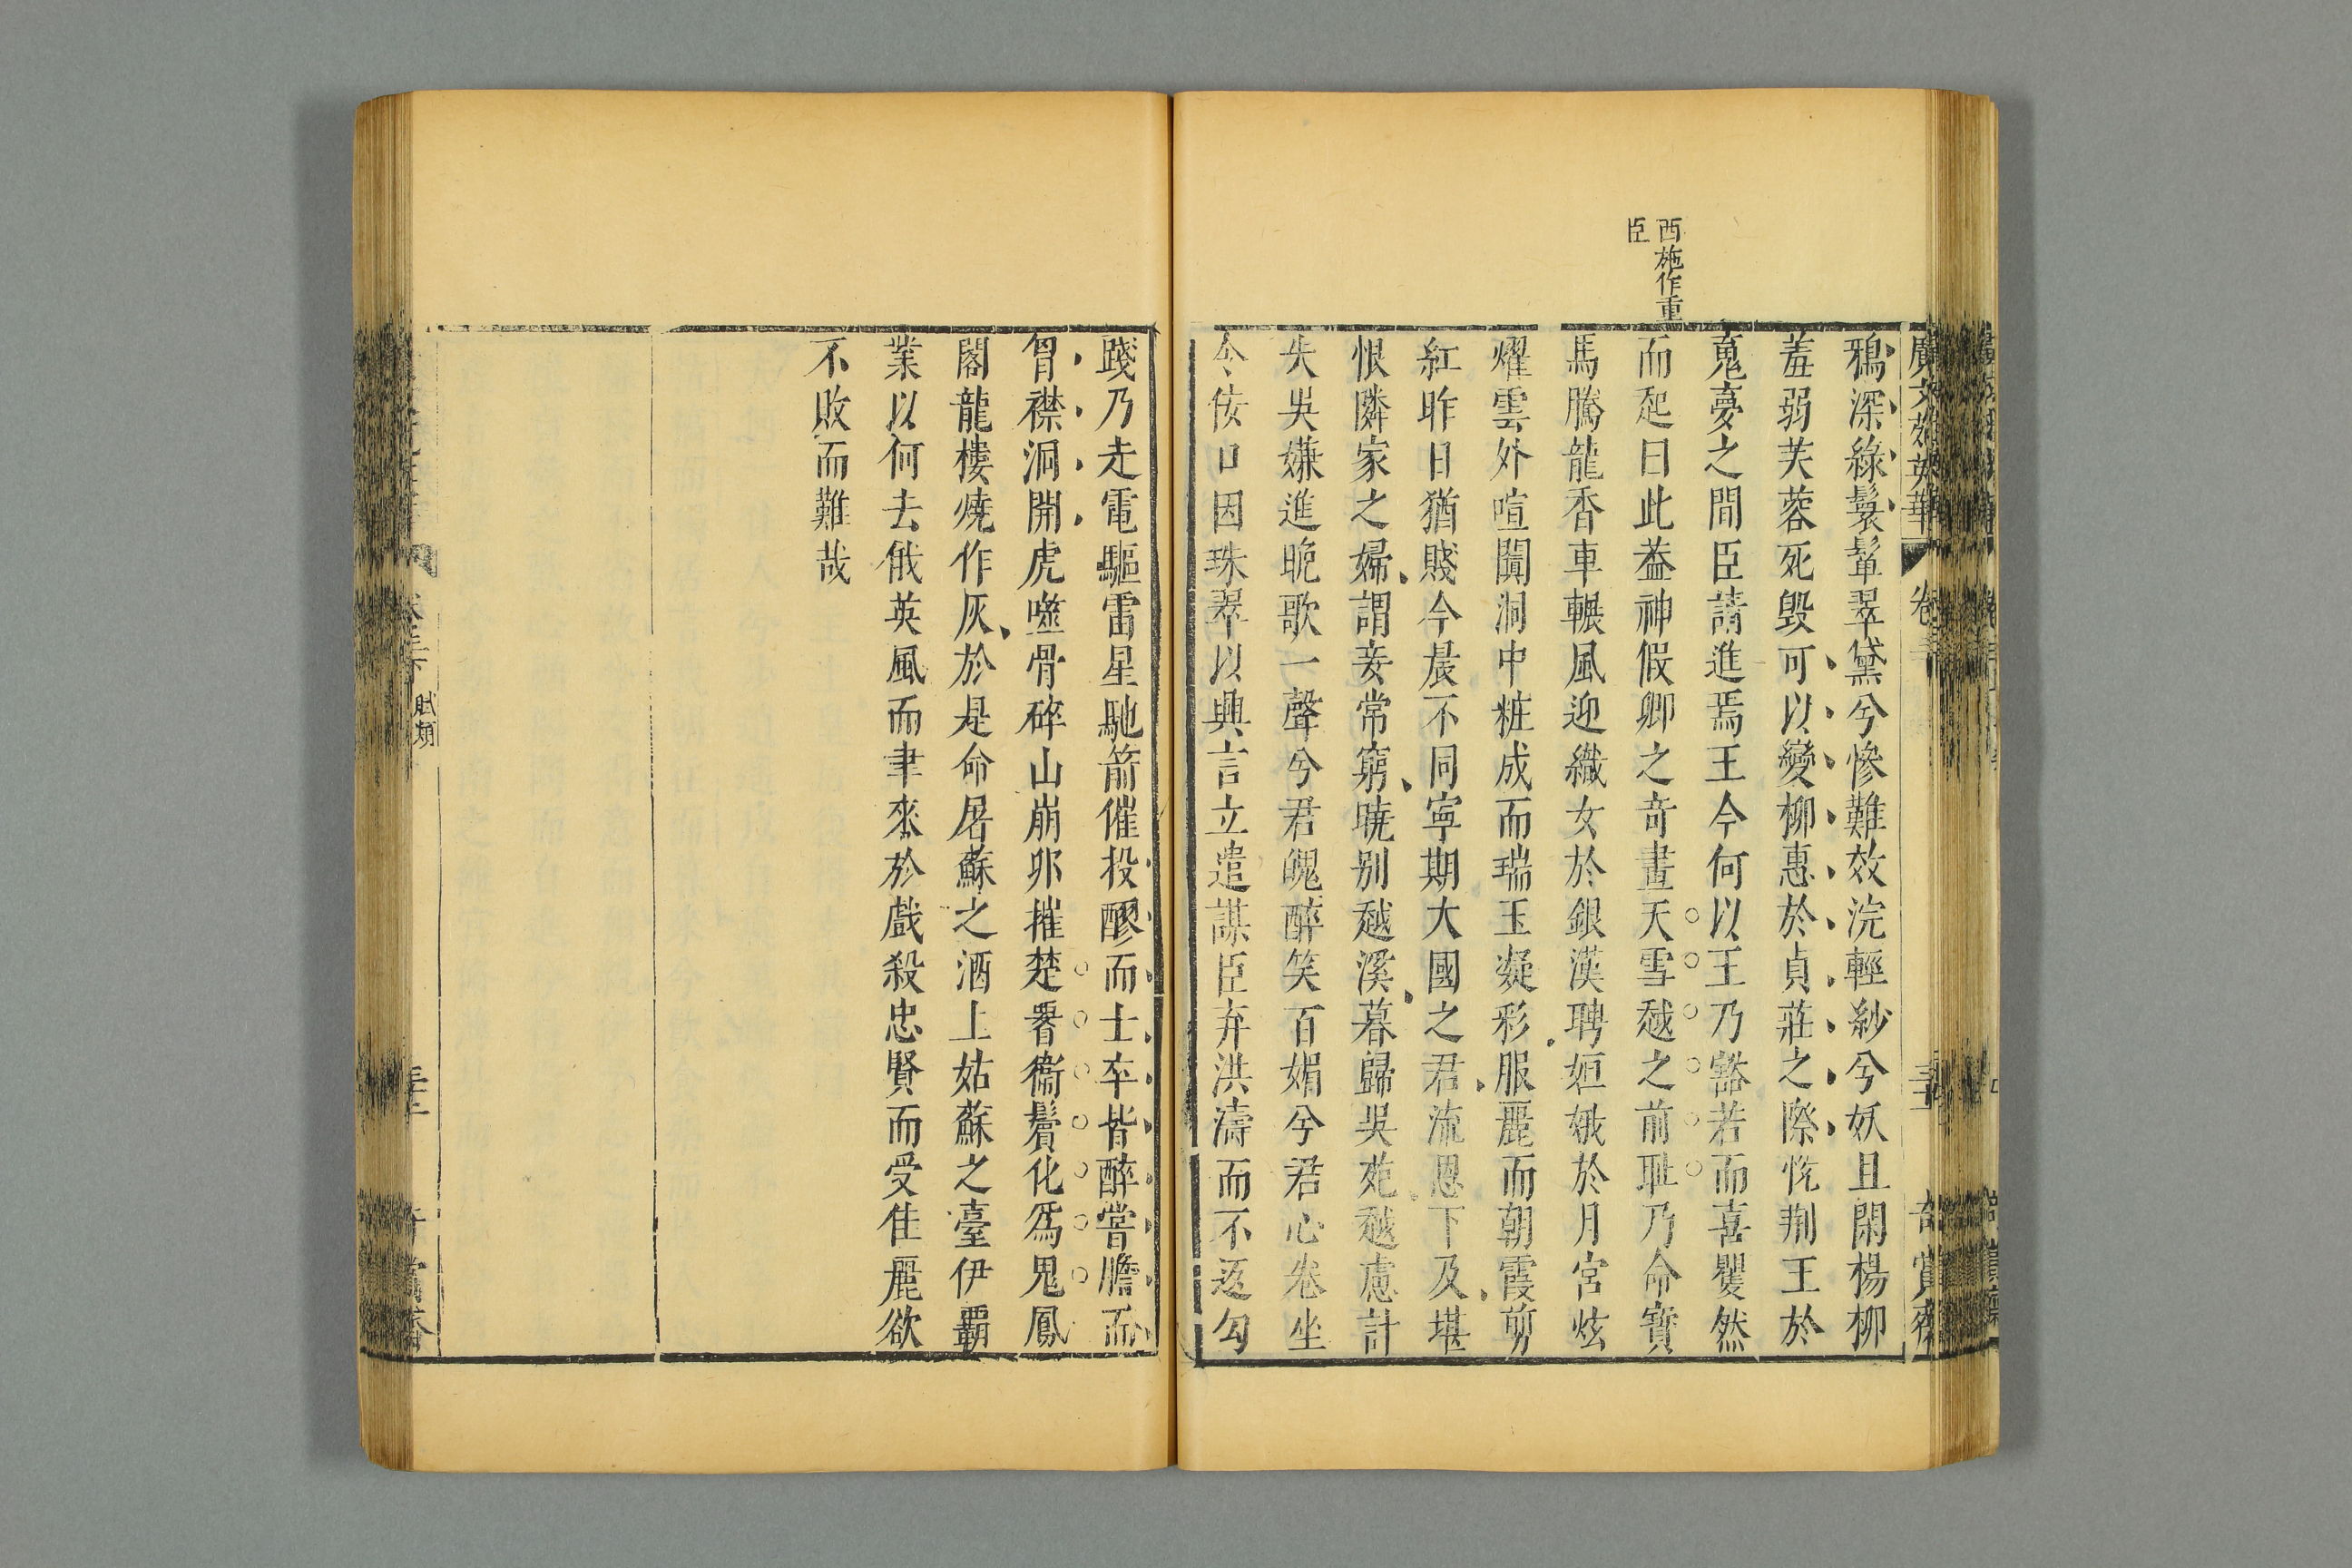 西施作重
臣
鴉深綠鬟鬌翠黛兮慘難效浣輕紗兮妖且閑楊柳
羞弱芙蓉死毀可以變柳惠於貞莊之際恍荆王於
䰟夣之間臣請進焉王今何以王乃豁若而喜矍然
而起曰此葢神假卿之奇畫天雪越之前耻乃命寶
馬騰龍香車輾風迎織女於銀漢聘姮娥於月宮炫
燿雲外喧闐洞中粧成而瑞玉凝彩服麗而朝霞剪
紅昨日猶賤今晨不同寧期大國之君流恩下及堪
恨隣家之婦謂妾常窮曉别越溪暮歸吳苑越慮計
失吳嫌進晚歌一聲兮君魄醉笑百媚兮君心卷坐
令佞口因珠翠以興言立遣謀臣弃洪濤而不返勾
踐乃走電驅雷星馳箭催投醪而士卒皆醉嘗膽而
胷襟洞開虎噬骨碎山崩卵摧楚胥𢖍鬢化爲鬼鳳
閣龍樓燒作灰於是命屠蘇之酒上姑蘇之臺伊覇
業以何去俄英風而聿來於戲殺忠賢而受佳麗欲
不敗而難哉
廣文苑英華
卷二
奇賞齋
賦類